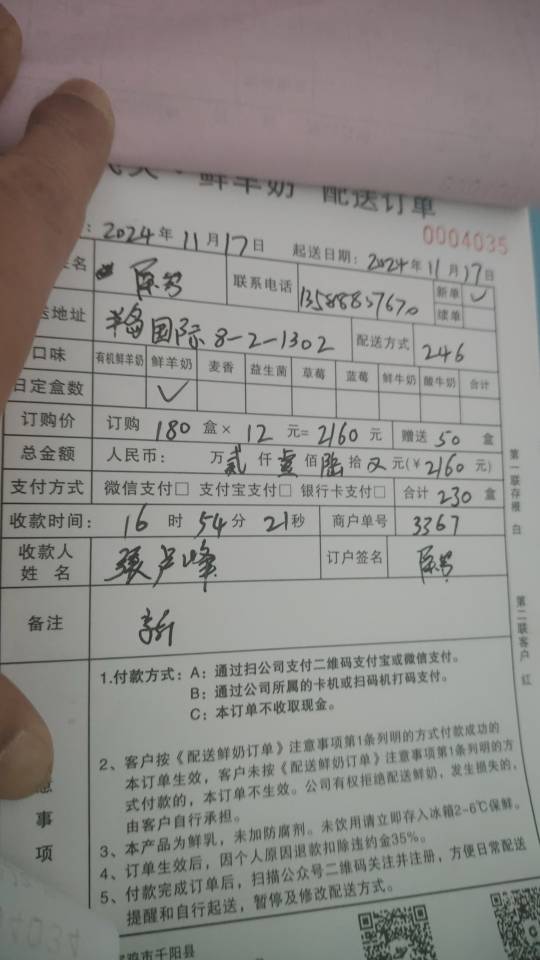 鲜羊奶 配送订单
0004035
: 2024年11月17日 起送日期: 2024年11月17日
名 联系电话 13588837670 新单 ✓
续单
地址 国际8-2-1302 配送方式 246
口味 有机鲜羊奶 鲜羊奶 麦香 益生菌 草莓 蓝莓 鲜牛奶 酸牛奶 合计
日定盒数 ✓
订购价 订购 180 盒× 12 元=2160元 赠送 50 盒
总金额 人民币: 万贰仟壹佰陆拾 元(¥2160元)
支付方式 微信支付□ 支付宝支付□ 银行卡支付□ 合计 230 盒
收款时间: 16 时 54 分 21 秒 商户单号 3367
收款人姓名 张卢峰 订户签名
备注 新
第一联存根 白
第二联客户 红
意事项
1.付款方式: A: 通过扫公司支付二维码支付宝或微信支付。
B: 通过公司所属的卡机或扫码机打码支付。
C: 本订单不收取现金。
2、客户按《配送鲜奶订单》注意事项第1条列明的方式付款成功的
本订单生效,客户未按《配送鲜奶订单》注意事项第1条列明的方
式付款的,本订单不生效。公司有权拒绝配送鲜奶,发生损失的,
由客户自行承担。
3、本产品为鲜乳,未加防腐剂。未饮用请立即存入冰箱2-6℃保鲜。
4、订单生效后,因个人原因退款扣除违约金35%。
5、付款完成订单后,扫描公众号二维码关注并注册,方便日常配送
提醒和自行起送,暂停及修改配送方式。
市千阳县